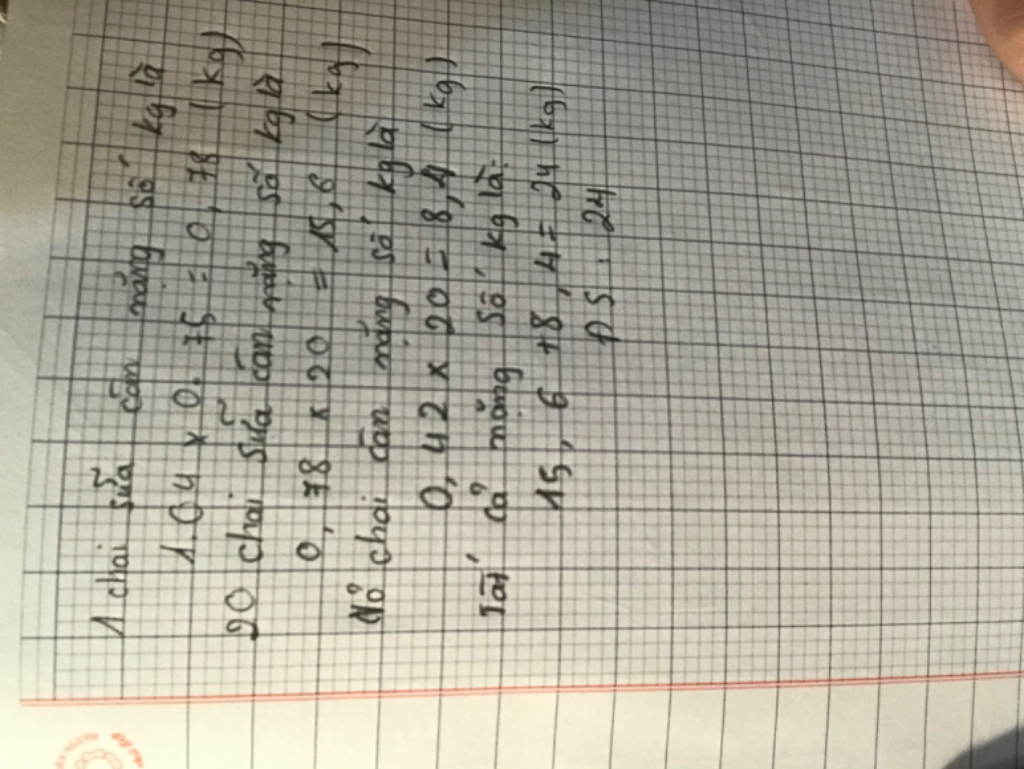 1 chai sữa cân nặng số kg là
1.04 x 0.75 = 0,78 (kg)
20 chai sữa cân nặng số kg là
0,78 x 20 = 15,6 (kg)
Vỏ chai cân nặng số kg là
0,42 x 20 = 8,4 (kg)
Tất cả nặng số kg là:
15,6 + 8,4 = 24 (kg)
ĐS: 24